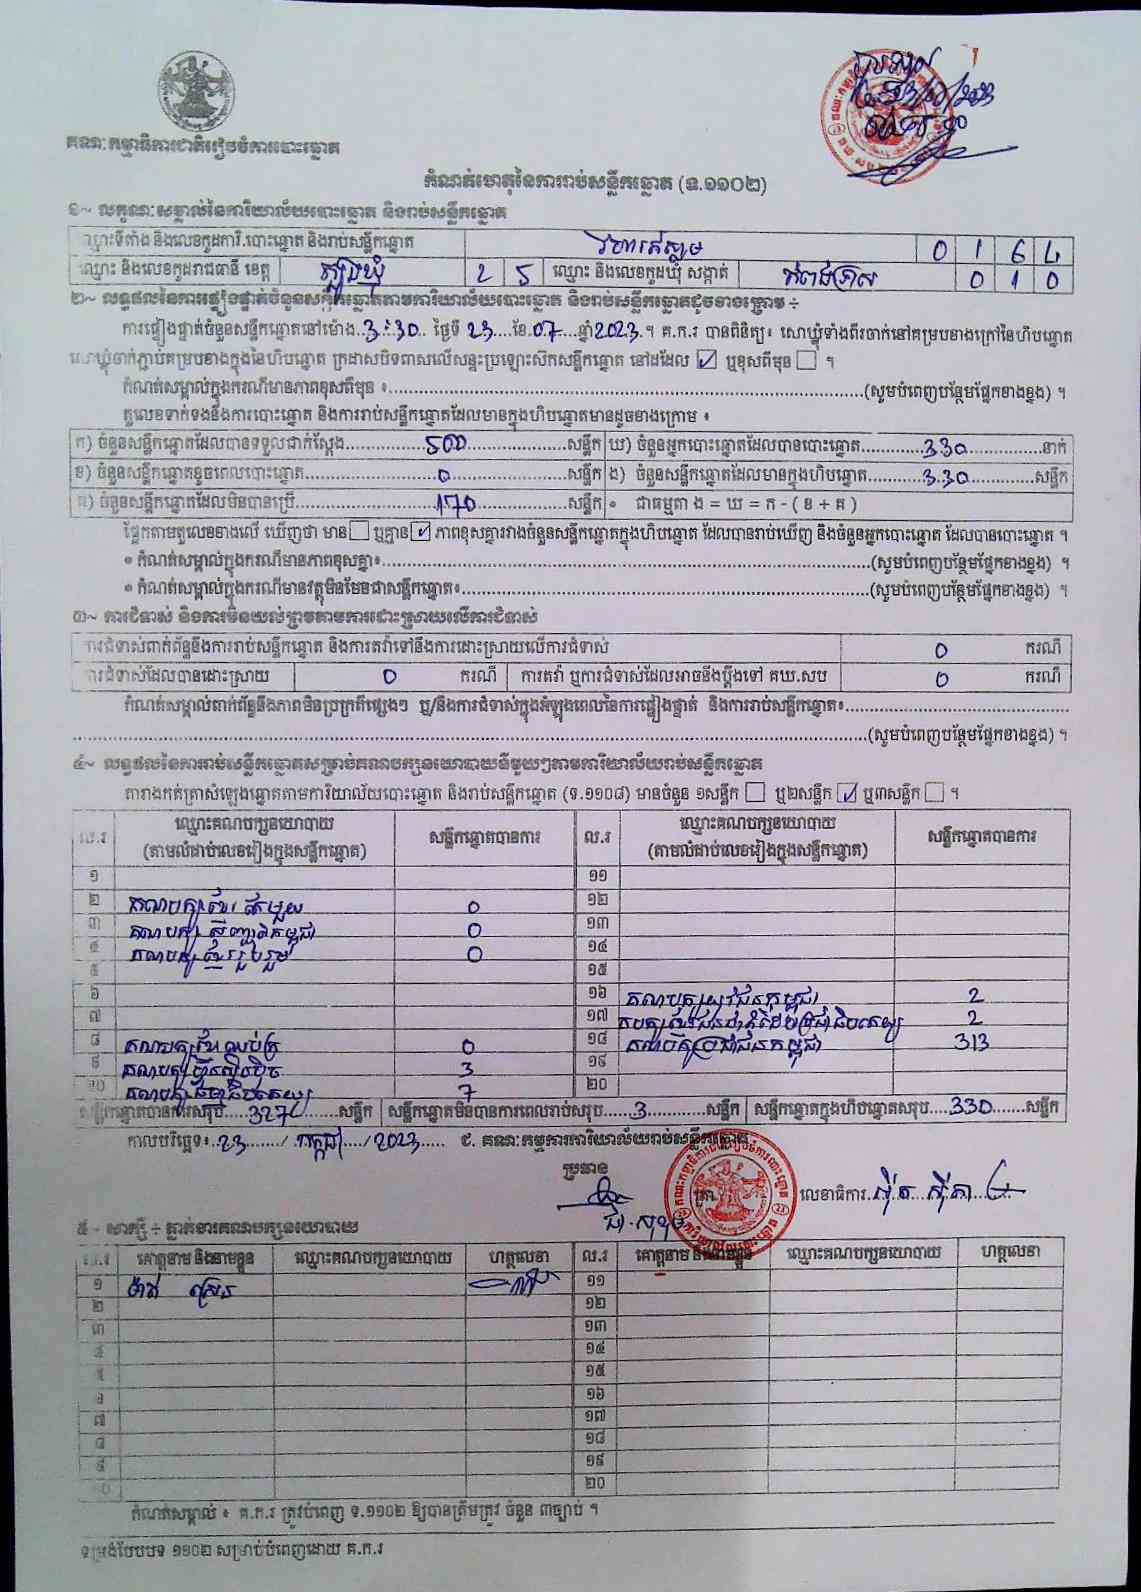 គណៈកម្មាធិការជាតិរៀបចំការបោះឆ្នោត
កំណត់ហេតុនៃការរាប់សន្លឹកឆ្នោត (ទ.១១០២)
១~ លក្ខណៈសម្គាល់នៃការិយាល័យបោះឆ្នោត និងរាប់សន្លឹកឆ្នោត
ឈ្មោះទីតាំង និងលេខកូដការិ.បោះឆ្នោត និងរាប់សន្លឹកឆ្នោត 0 1 6 4
ឈ្មោះ និងលេខកូដរាជធានី ខេត្ត ត្បូងឃ្មុំ 2 5 ឈ្មោះ និងលេខកូដឃុំ សង្កាត់ 0 1 0
២~ លទ្ធផលនៃការផ្ទៀងផ្ទាត់ចំនួនសន្លឹកឆ្នោតតាមការិយាល័យបោះឆ្នោត និងរាប់សន្លឹកឆ្នោតដូចខាងក្រោម ÷
ការផ្ទៀងផ្ទាត់ចំនួនសន្លឹកឆ្នោតនៅម៉ោង..3:30.. ថ្ងៃទី 23 ខែ 07 ឆ្នាំ 2023 ។ គ.ក.រ បានពិនិត្យ៖ សោឃ្លុំទាំងពីរចាក់នៅគម្របខាងក្រៅនៃហិបឆ្នោត
សោឃ្លុំចាក់ភ្ជាប់គម្របខាងក្នុងនៃហិបឆ្នោត ក្រដាសបិទពាសលើសន្ទះប្រឡោះស៊កសន្លឹកឆ្នោត នៅដដែល ☑ ឬខុសពីមុន ☐ ។
កំណត់សម្គាល់ក្នុងករណីមានភាពខុសពីមុន ៖..........(សូមបំពេញបន្ថែមផ្នែកខាងខ្នង) ។
តួលេខទាក់ទងនឹងការបោះឆ្នោត និងការរាប់សន្លឹកឆ្នោតដែលមានក្នុងហិបឆ្នោតមានដូចខាងក្រោម ៖
ក) ចំនួនសន្លឹកឆ្នោតដែលបានទទួលជាក់ស្តែង.....500.....សន្លឹក ឃ) ចំនួនអ្នកបោះឆ្នោតដែលបានបោះឆ្នោត.....330.....នាក់
ខ) ចំនួនសន្លឹកឆ្នោតខូចពេលបោះឆ្នោត.....0.....សន្លឹក ង) ចំនួនសន្លឹកឆ្នោតដែលមានក្នុងហិបឆ្នោត.....330.....សន្លឹក
គ) ចំនួនសន្លឹកឆ្នោតដែលមិនបានប្រើ.....170.....សន្លឹក • ជាធម្មតា ង = ឃ = ក - ( ខ + គ )
ផ្អែកតាមតួលេខខាងលើ ឃើញថា មាន ☐ ឬគ្មាន ☑ ភាពខុសគ្នារវាងចំនួនសន្លឹកឆ្នោតក្នុងហិបឆ្នោត ដែលបានរាប់ឃើញ និងចំនួនអ្នកបោះឆ្នោត ដែលបានបោះឆ្នោត ។
• កំណត់សម្គាល់ក្នុងករណីមានភាពខុសគ្នា៖..........(សូមបំពេញបន្ថែមផ្នែកខាងខ្នង) ។
• កំណត់សម្គាល់ក្នុងករណីមានវត្ថុមិនមែនជាសន្លឹកឆ្នោត៖..........(សូមបំពេញបន្ថែមផ្នែកខាងខ្នង) ។
៣~ ការជំទាស់ និងការមិនយល់ព្រមតាមការដោះស្រាយលើការជំទាស់
ការជំទាស់ពាក់ព័ន្ធនឹងការរាប់សន្លឹកឆ្នោត និងការតវ៉ាទៅនឹងការដោះស្រាយលើការជំទាស់ 0 ករណី
ការជំទាស់ដែលបានដោះស្រាយ 0 ករណី ការតវ៉ា ឬការជំទាស់ដែលអាចនឹងប្តឹងទៅ គឃ.សប 0 ករណី
កំណត់សម្គាល់ពាក់ព័ន្ធនឹងភាពមិនប្រក្រតីផ្សេងៗ ឬ/និងការជំទាស់ក្នុងអំឡុងពេលនៃការផ្ទៀងផ្ទាត់ និងការរាប់សន្លឹកឆ្នោត៖..........
..........(សូមបំពេញបន្ថែមផ្នែកខាងខ្នង) ។
៤~ លទ្ធផលនៃការរាប់សន្លឹកឆ្នោតសម្រាប់គណបក្សនយោបាយនីមួយៗតាមការិយាល័យរាប់សន្លឹកឆ្នោត
តារាងកត់ត្រាសំឡេងឆ្នោតតាមការិយាល័យបោះឆ្នោត និងរាប់សន្លឹកឆ្នោត (ទ.១១០៨) មានចំនួន ១សន្លឹក ☐ ឬ២សន្លឹក ☑ ឬ៣សន្លឹក ☐ ។
ល.រ ឈ្មោះគណបក្សនយោបាយ (តាមលំដាប់លេខរៀងក្នុងសន្លឹកឆ្នោត) សន្លឹកឆ្នោតបានការ ល.រ ឈ្មោះគណបក្សនយោបាយ (តាមលំដាប់លេខរៀងក្នុងសន្លឹកឆ្នោត) សន្លឹកឆ្នោតបានការ
១ ១១
២ គណបក្សខ្មែរតែមួយ 0 ១២
៣ គណបក្ស 0 ១៣
៤ គណបក្សខ្មែររួបរួម 0 ១៤
៥ ១៥
៦ ១៦ គណបក្សយុវជនកម្ពុជា 2
៧ ១៧ 2
៨ គណបក្ស 0 ១៨ គណបក្សប្រជាជនកម្ពុជា 313
៩ គណបក្ស 3 ១៩
១០ គណបក្ស 7 ២០
សន្លឹកឆ្នោតបានការសរុប....327....សន្លឹក សន្លឹកឆ្នោតមិនបានការពេលរាប់សរុប....3....សន្លឹក សន្លឹកឆ្នោតក្នុងហិបឆ្នោតសរុប....330....សន្លឹក
កាលបរិច្ឆេទ៖..23../ កក្កដា /2023 ជ. គណៈកម្មការការិយាល័យរាប់សន្លឹកឆ្នោត
ប្រធាន លេខាធិការ
៥ - សាក្សី ÷ ភ្នាក់ងារគណបក្សនយោបាយ
ល.រ គោត្តនាម និងនាមខ្លួន ឈ្មោះគណបក្សនយោបាយ ហត្ថលេខា ល.រ គោត្តនាម និងនាមខ្លួន ឈ្មោះគណបក្សនយោបាយ ហត្ថលេខា
១ ១១
២ ១២
៣ ១៣
៤ ១៤
៥ ១៥
៦ ១៦
៧ ១៧
៨ ១៨
៩ ១៩
១០ ២០
កំណត់សម្គាល់ ៖ គ.ក.រ ត្រូវបំពេញ ទ.១១០២ ឱ្យបានត្រឹមត្រូវ ចំនួន ៣ច្បាប់ ។
ទម្រង់បែបបទ ១១០២ សម្រាប់បំពេញដោយ គ.ក.រ